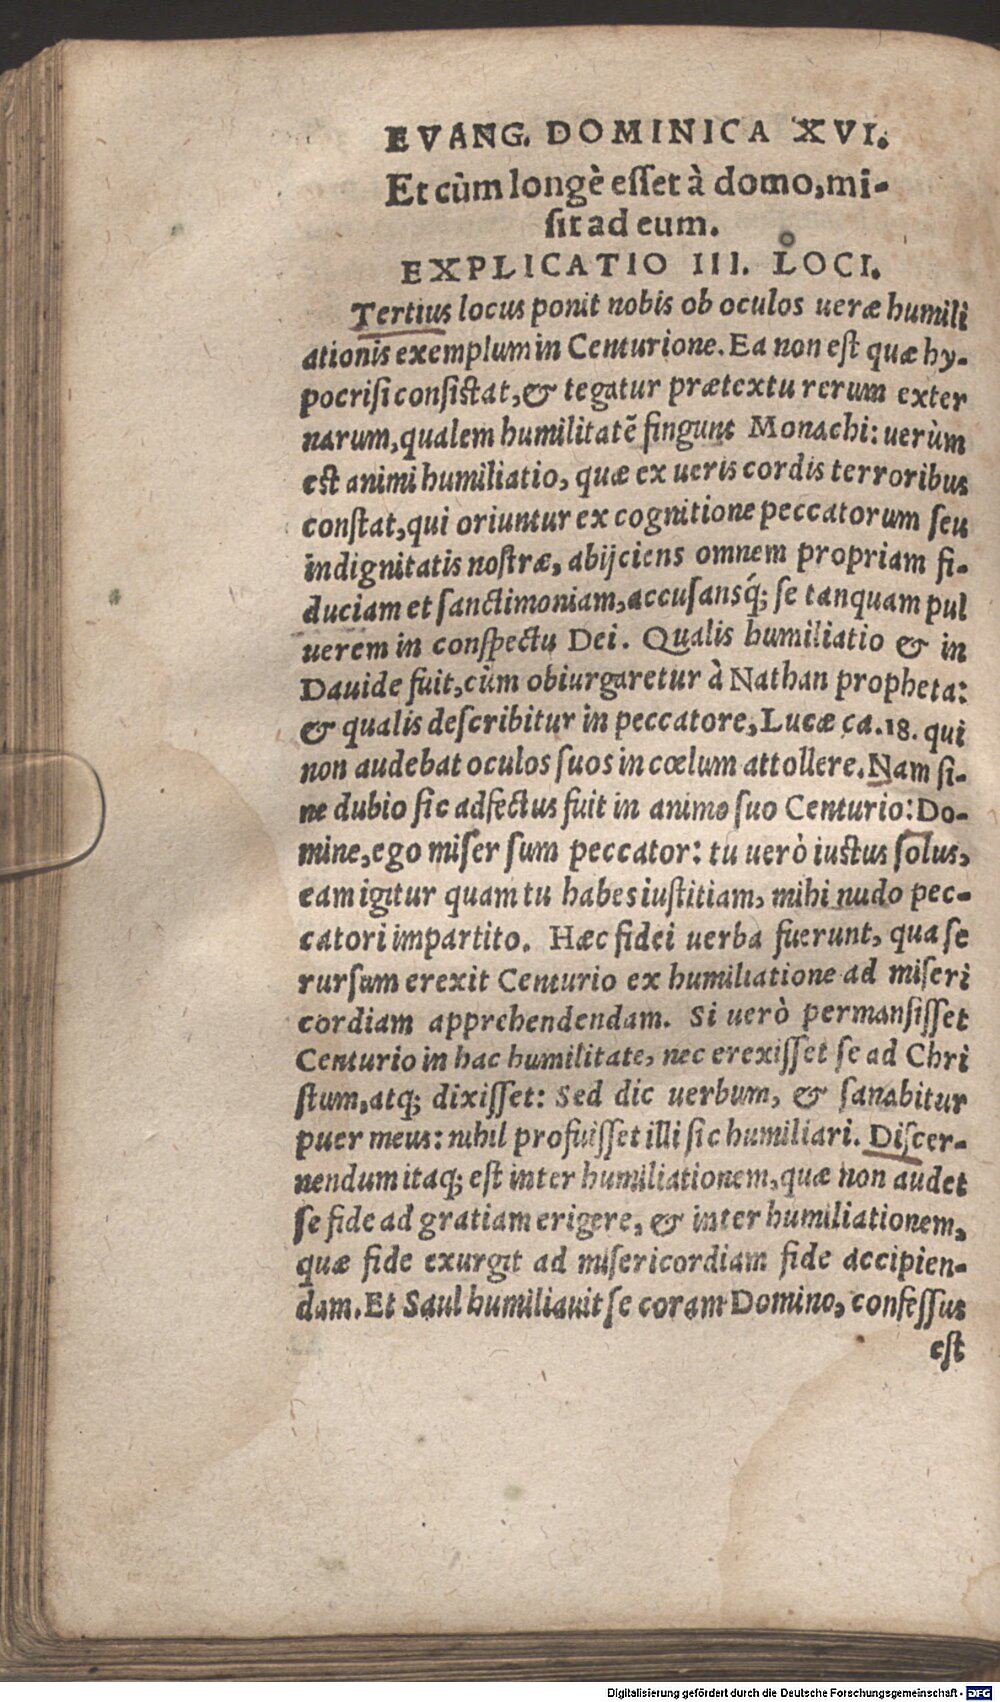 EVANG. DOMINICA XVI.
Et cùm longè esset à domo, mi-
sit ad eum.
EXPLICATIO III. LOCI.
Tertius locus ponit nobis ob oculos ueræ humili
ationis exemplum in Centurione. Ea non est quæ hy-
pocrisi consistat, & tegatur prætextu rerum exter
narum, qualem humilitatē fingunt Monachi: uerùm
est animi humiliatio, quæ ex ueris cordis terroribus
constat, qui oriuntur ex cognitione peccatorum seu
indignitatis nostræ, abijciens omnem propriam fi-
duciam et sanctimoniam, accusansq́; se tanquam pul
uerem in conspectu Dei. Qualis humiliatio & in
Dauide fuit, cùm obiurgaretur à Nathan propheta:
& qualis describitur in peccatore, Lucæ ca. 18. qui
non audebat oculos suos in cœlum attollere. Nam si-
ne dubio sic adfectus fuit in animo suo Centurio: Do-
mine, ego miser sum peccator: tu uerò iustus solus,
eam igitur quam tu habes iustitiam, mihi nudo pec-
catori impartito. Hæc fidei uerba fuerunt, qua se
rursum erexit Centurio ex humiliatione ad miseri
cordiam apprehendendam. Si uerò permansisset
Centurio in hac humilitate, nec erexisset se ad Chri
stum, atq; dixisset: Sed dic uerbum, & sanabitur
puer meus: nihil profuisset illi sic humiliari. Discer-
nendum itaq; est inter humiliationem, quæ non audet
se fide ad gratiam erigere, & inter humiliationem,
quæ fide exurgit ad misericordiam fide accipien-
dam. Et Saul humiliauit se coram Domino, confessus
est
Digitalisierung gefördert durch die Deutsche Forschungsgemeinschaft - DFG